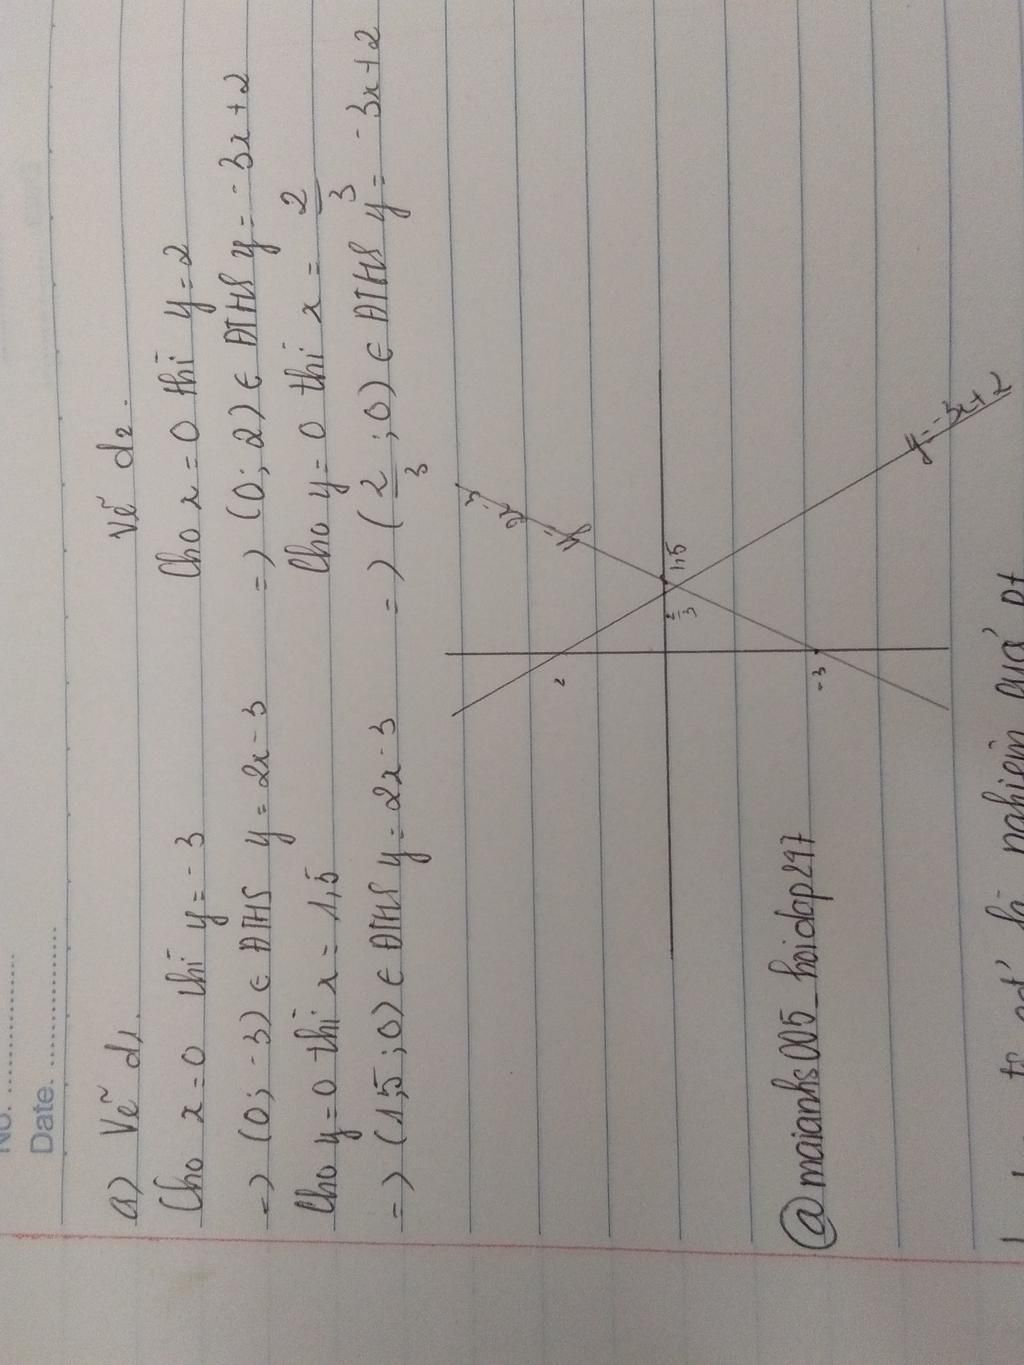 No. ..............
Date. ..................
a) Vẽ d₁.
Cho x = 0 thì y = -3
=) (0; -3) ∈ ĐTHS y = 2x - 3
Cho y = 0 thì x = 1,5
=) (1,5; 0) ∈ ĐTHS y = 2x - 3
Vẽ d₂.
Cho x = 0 thì y = 2
=) (0; 2) ∈ ĐTHS y = -3x + 2
Cho y = 0 thì x = 2/3
=) (2/3; 0) ∈ ĐTHS y = -3x + 2
2
2/3
1,5
-3
y = -3x + 2
@maianhs005_hoidap247
là nghiệm quá pt